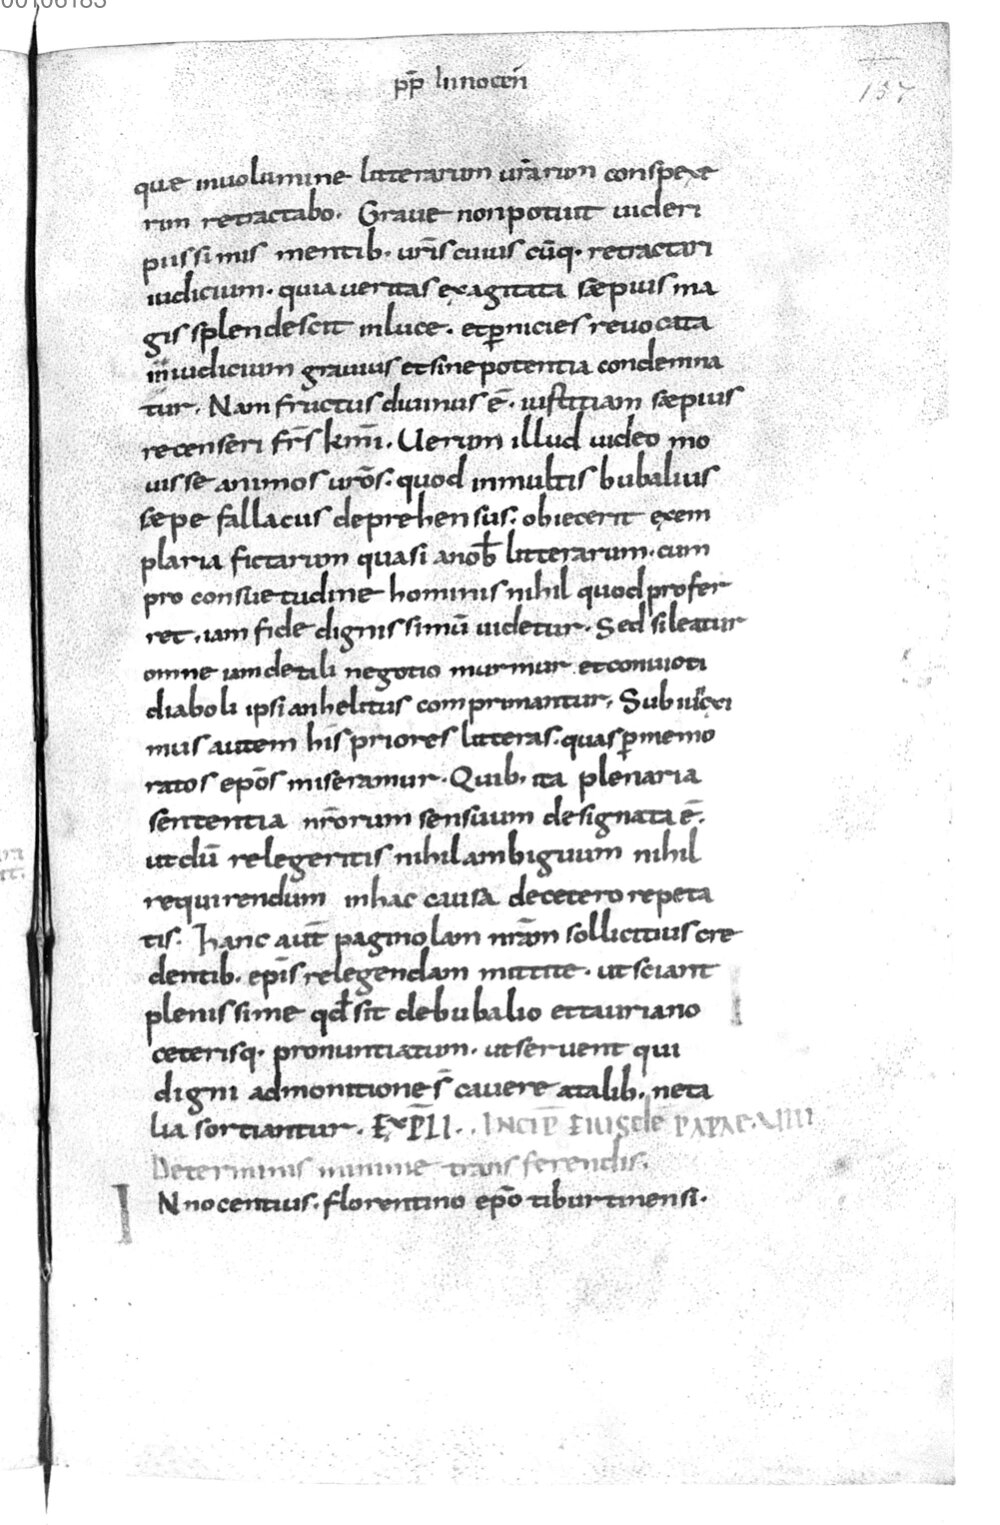 00106183
pp̄ Innocen̄
157
quae inuolumine litterarum ur̄arum conspexe
rim retractabo. Graue nonpotuit uideri
piissimis mentib. ur̄is cuius cūq. retractari
iudicium. quia ueritas exagitata saepius ma
gis splendescit inluce. et p̱nicies reuocata
iniudicium grauius et sine potentia condemna
tur. Nam fructus diuinus ē. iustitiam saepius
recenseri fr̄s km̄i. Uerum illud uideo mo
uisse animos ur̄os. quod inmultis bubalius
saepe fallaciis deprehensus. obiecerit exem
plaria fictarum quasi anob̄ litterarum. cum
pro consuetudine hominis nihil quod profer
ret. iam fide dignissimū uidetur. Sed sileatur
omne iam detali negotio murmur et conuioti
diaboli ipsi anhelitus comprimantur. Subiieci
mus autem his priores litteras. quas p̱memo
ratos ep̄os miseramur. Quib. ita plenaria
sententia nr̄orum sensuum designata ē.
ut dū relegeritis nihil ambiguum nihil
requirendum inhac causa decetero repeta
tis. Hanc aut̄ paginolam nr̄am sollicitius cre
dentib. ep̄is relegendam mittite. ut sciant
plenissime qd̄ sit debubalio et tauriano
ceterisq. pronuntiatum. ut seruent qui
digni admonitione s̄ cauere atalib. neta
lia sortiantur. EXPL̄I. INCIP̄ EIUSdē PAPAE. VIIII
Determinis minime transferendis.
INnocentius. florentino ep̄o tiburtinensi.